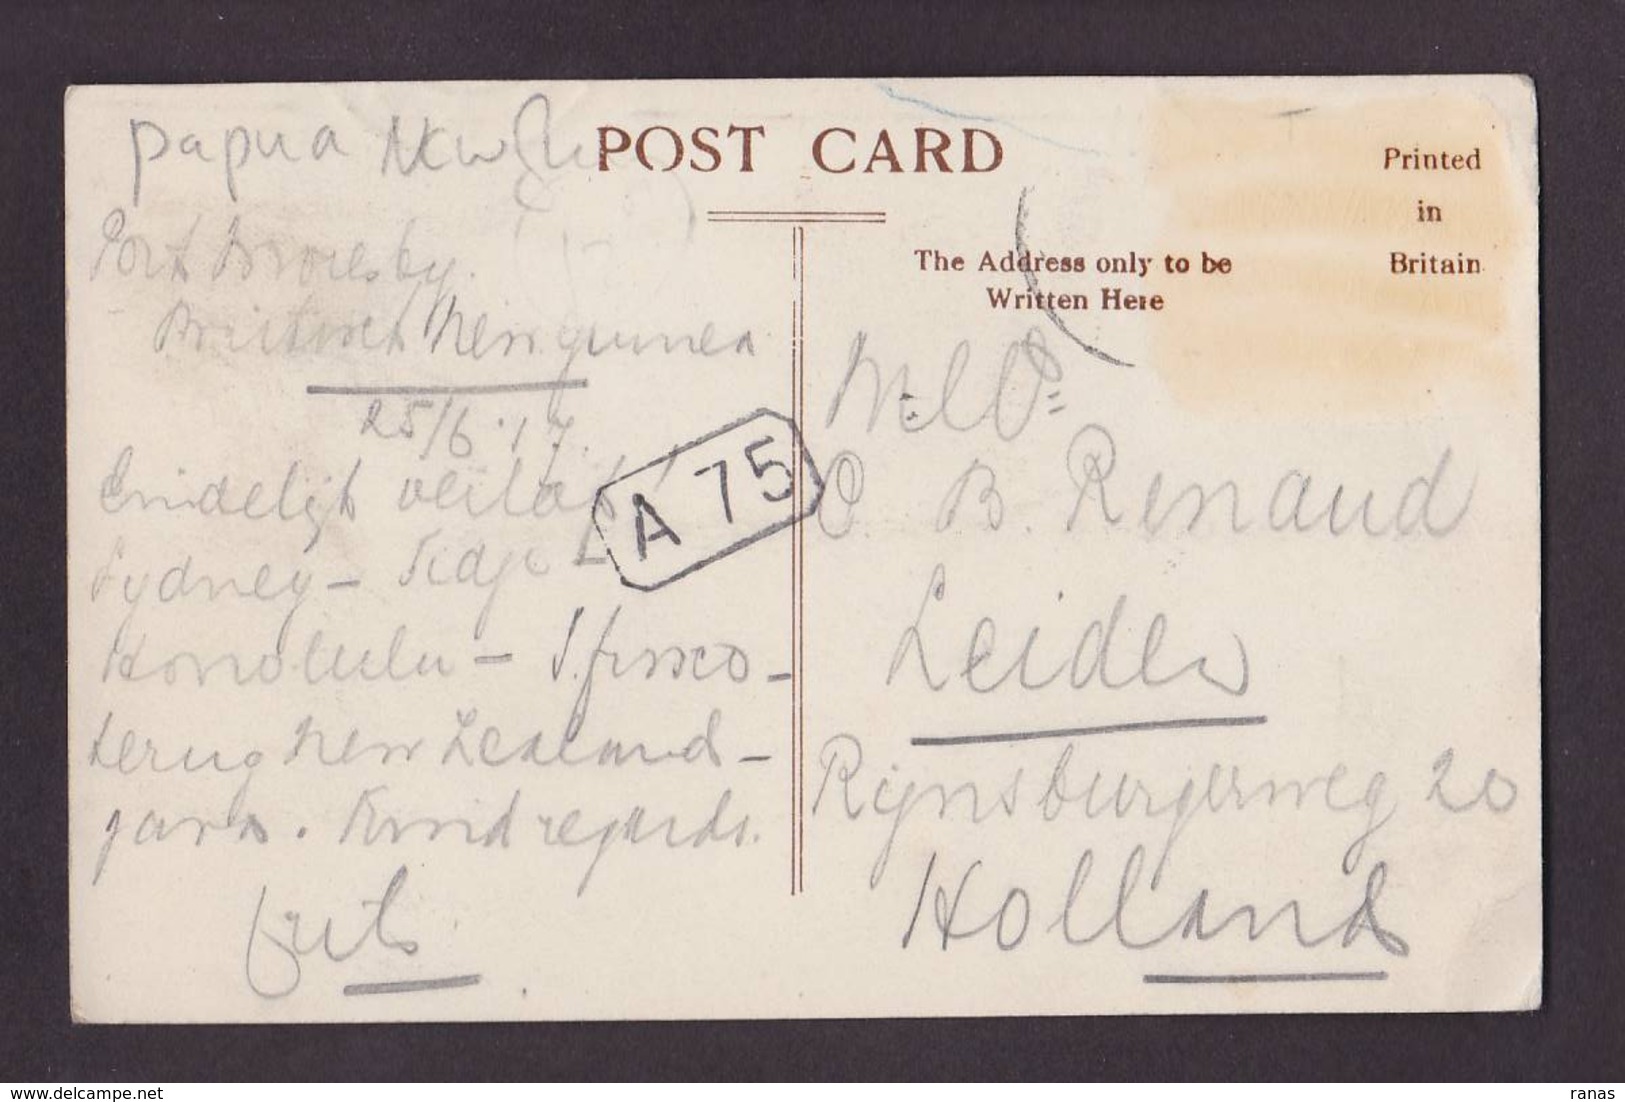 papua New Gui
POST CARD
Printed
in
Britain
The Address only to be
Written Here
Port Moresby.
British New guinea
25/6.17.
Eindelijk
A 75
Sydney –
Honolulu – S. frisco –
terug New Zealand –
java. Kind regards.
frits
C. B. Renaud
Leiden
Rijnsburgerweg 20
Holland
www.delcampe.net
ranas